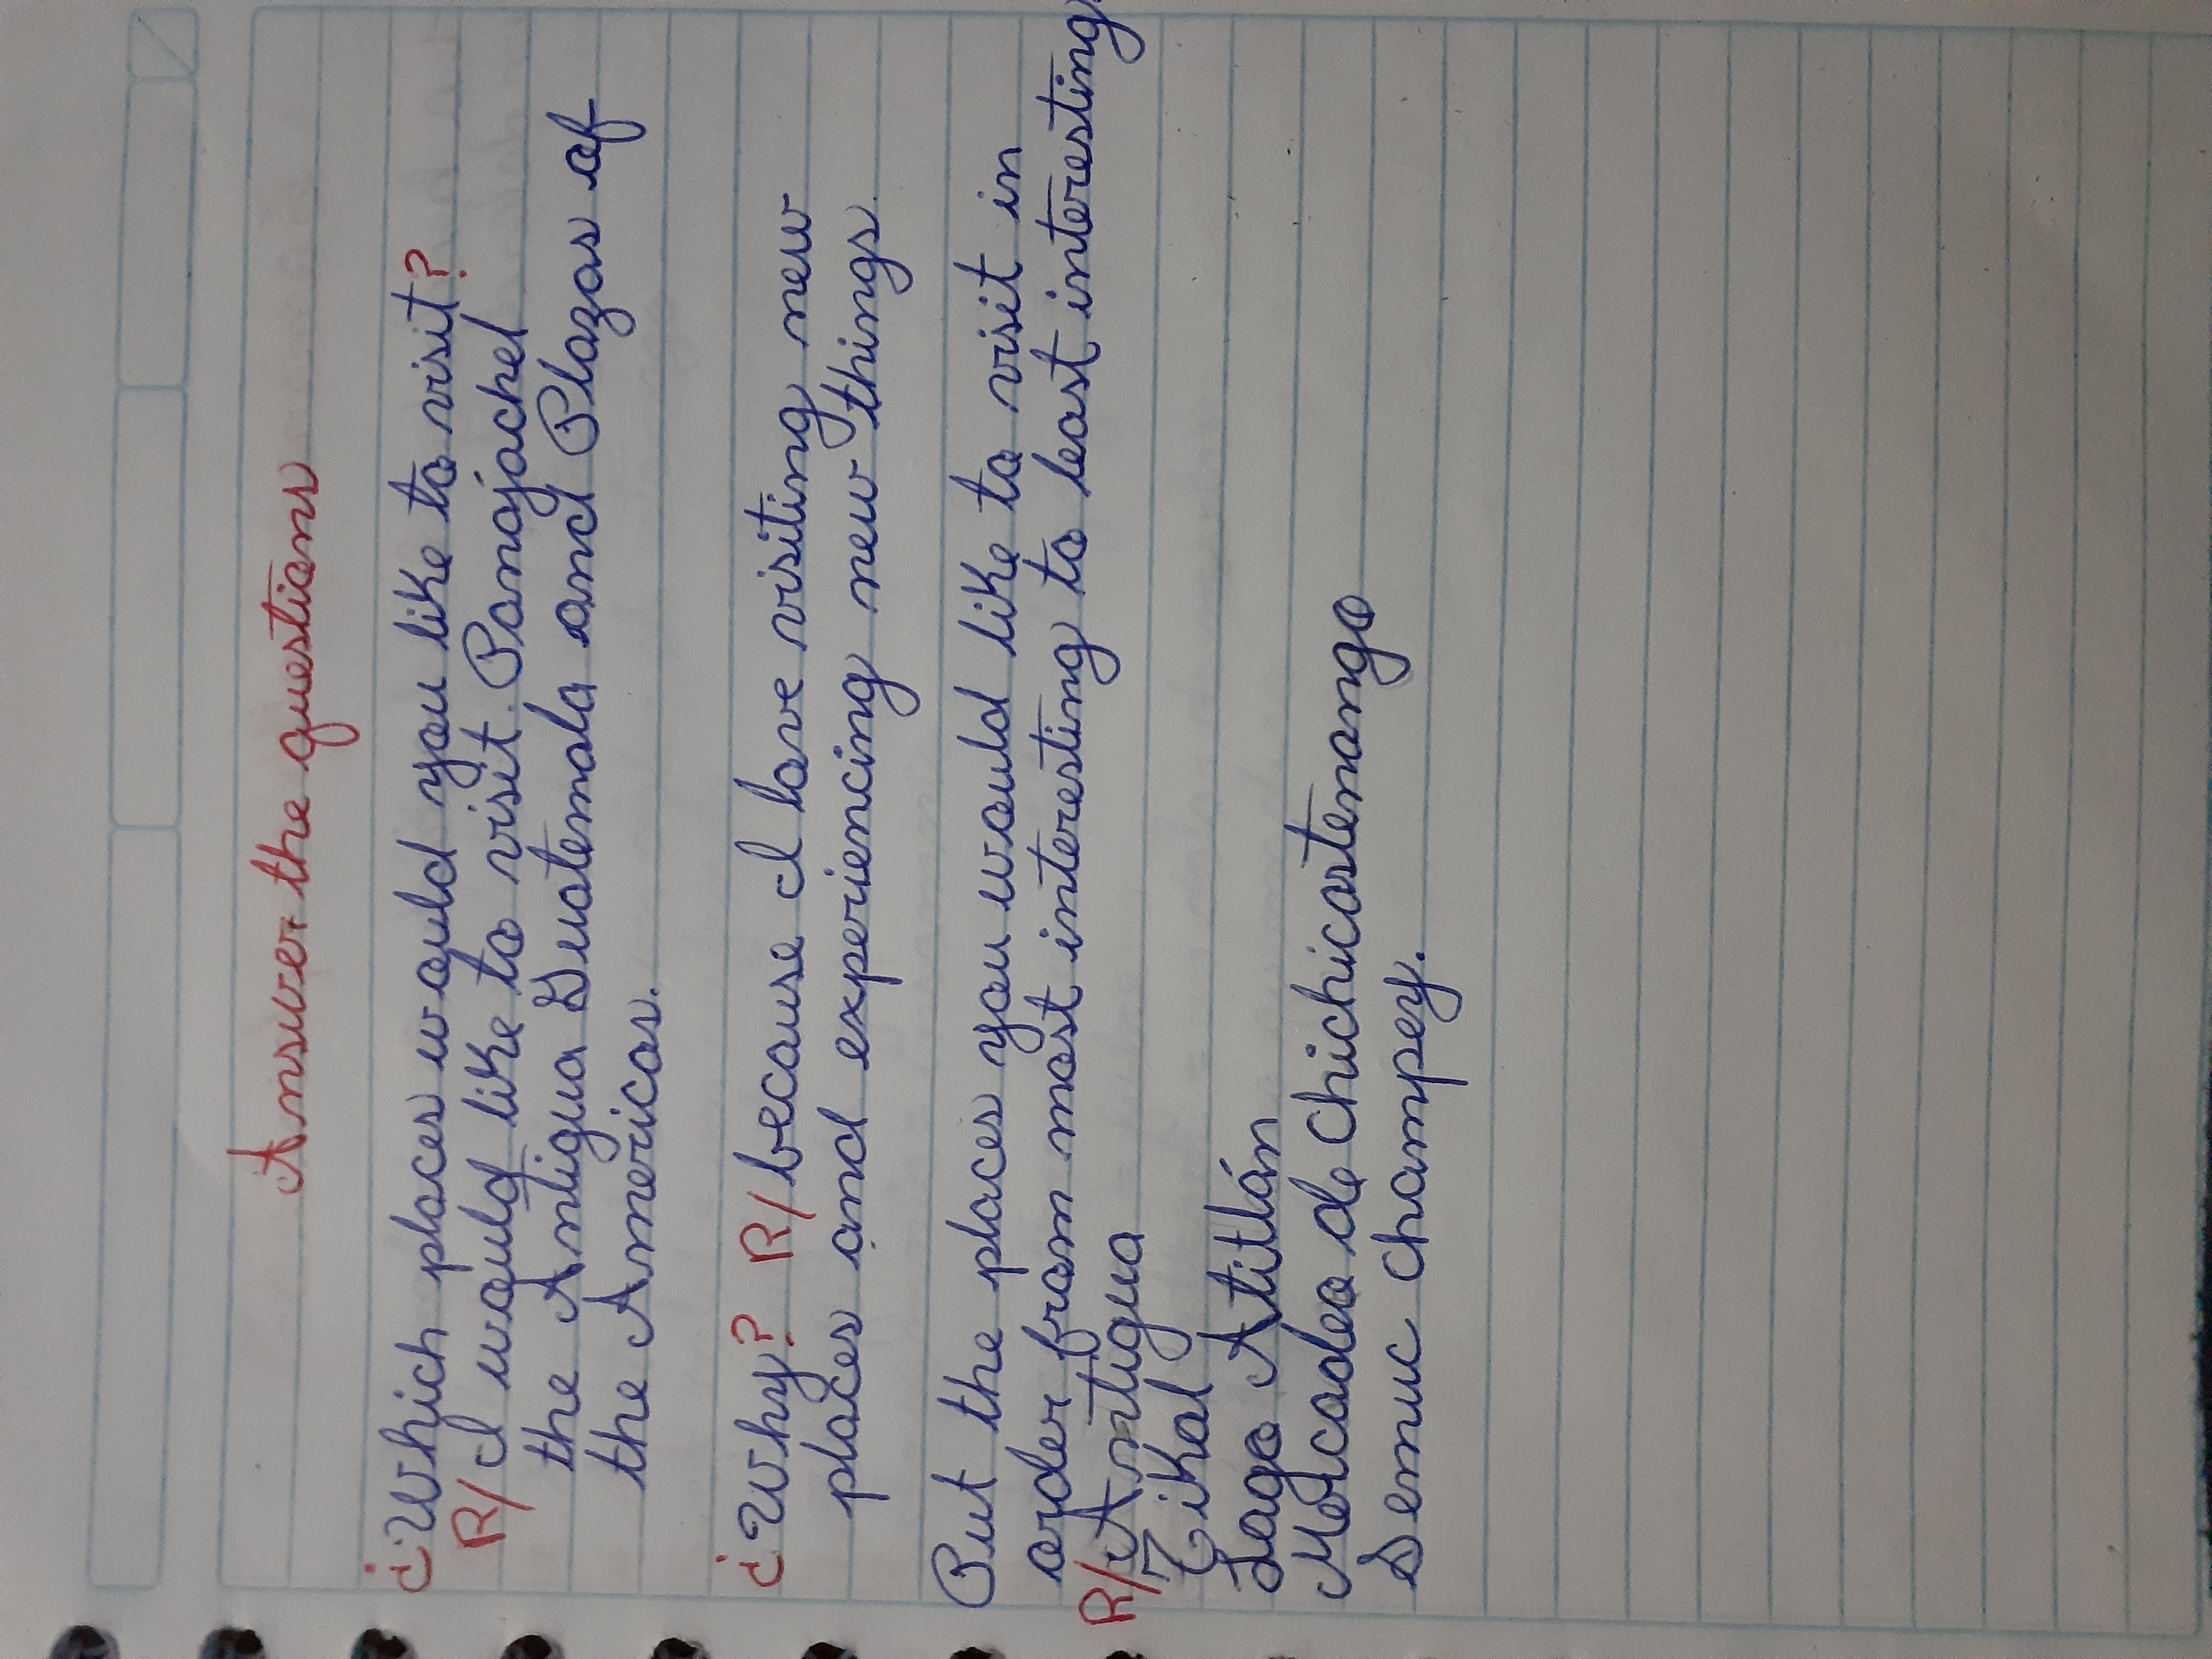 Answer the questions
¿Which places would you like to visit?
R/ I would like to visit Panajachel
the Antigua Guatemala and Plazas of
the Americas.
¿Why? R/ because I love visiting new
places and experiencing new things.
Put the places you would like to visit in
order from most interesting to least interesting
R/ Antigua
Tikal
Lago Atitlán
Mercadeo de Chichicastenango
Semuc Champey.